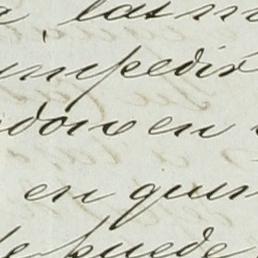 a, las m
impedir
donx en
en quin
le puede